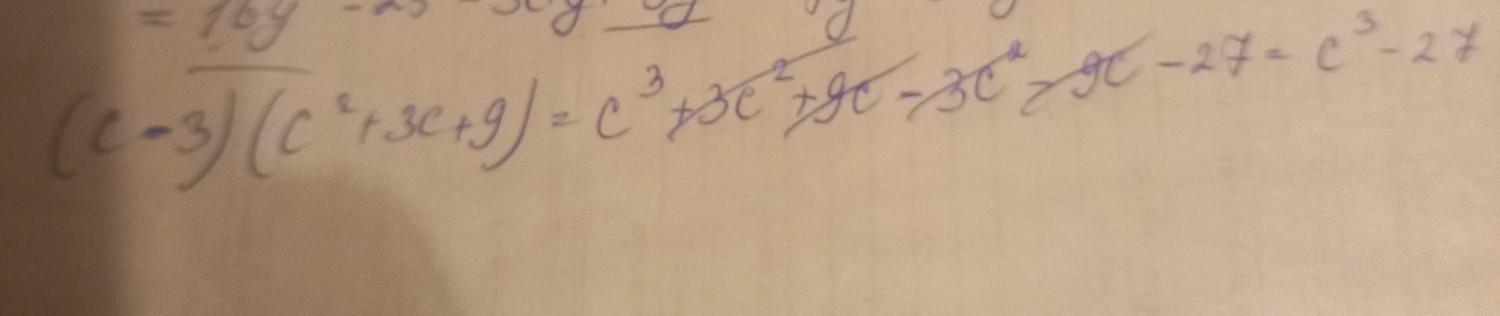 = 16y
(c-3)(c²+3c+9)=c³+3c²+9c-3c²-9c-27=c³-27